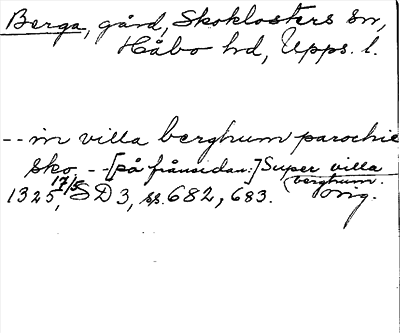 Berga, gård, Skoklosters sn,
Håbo hd, Upps. l.
-- in villa berghum parochie
sko -- [på frånsidan:] Super villa
berghum.
1325, 17/5 SD 3, ss. 682, 683. orig.